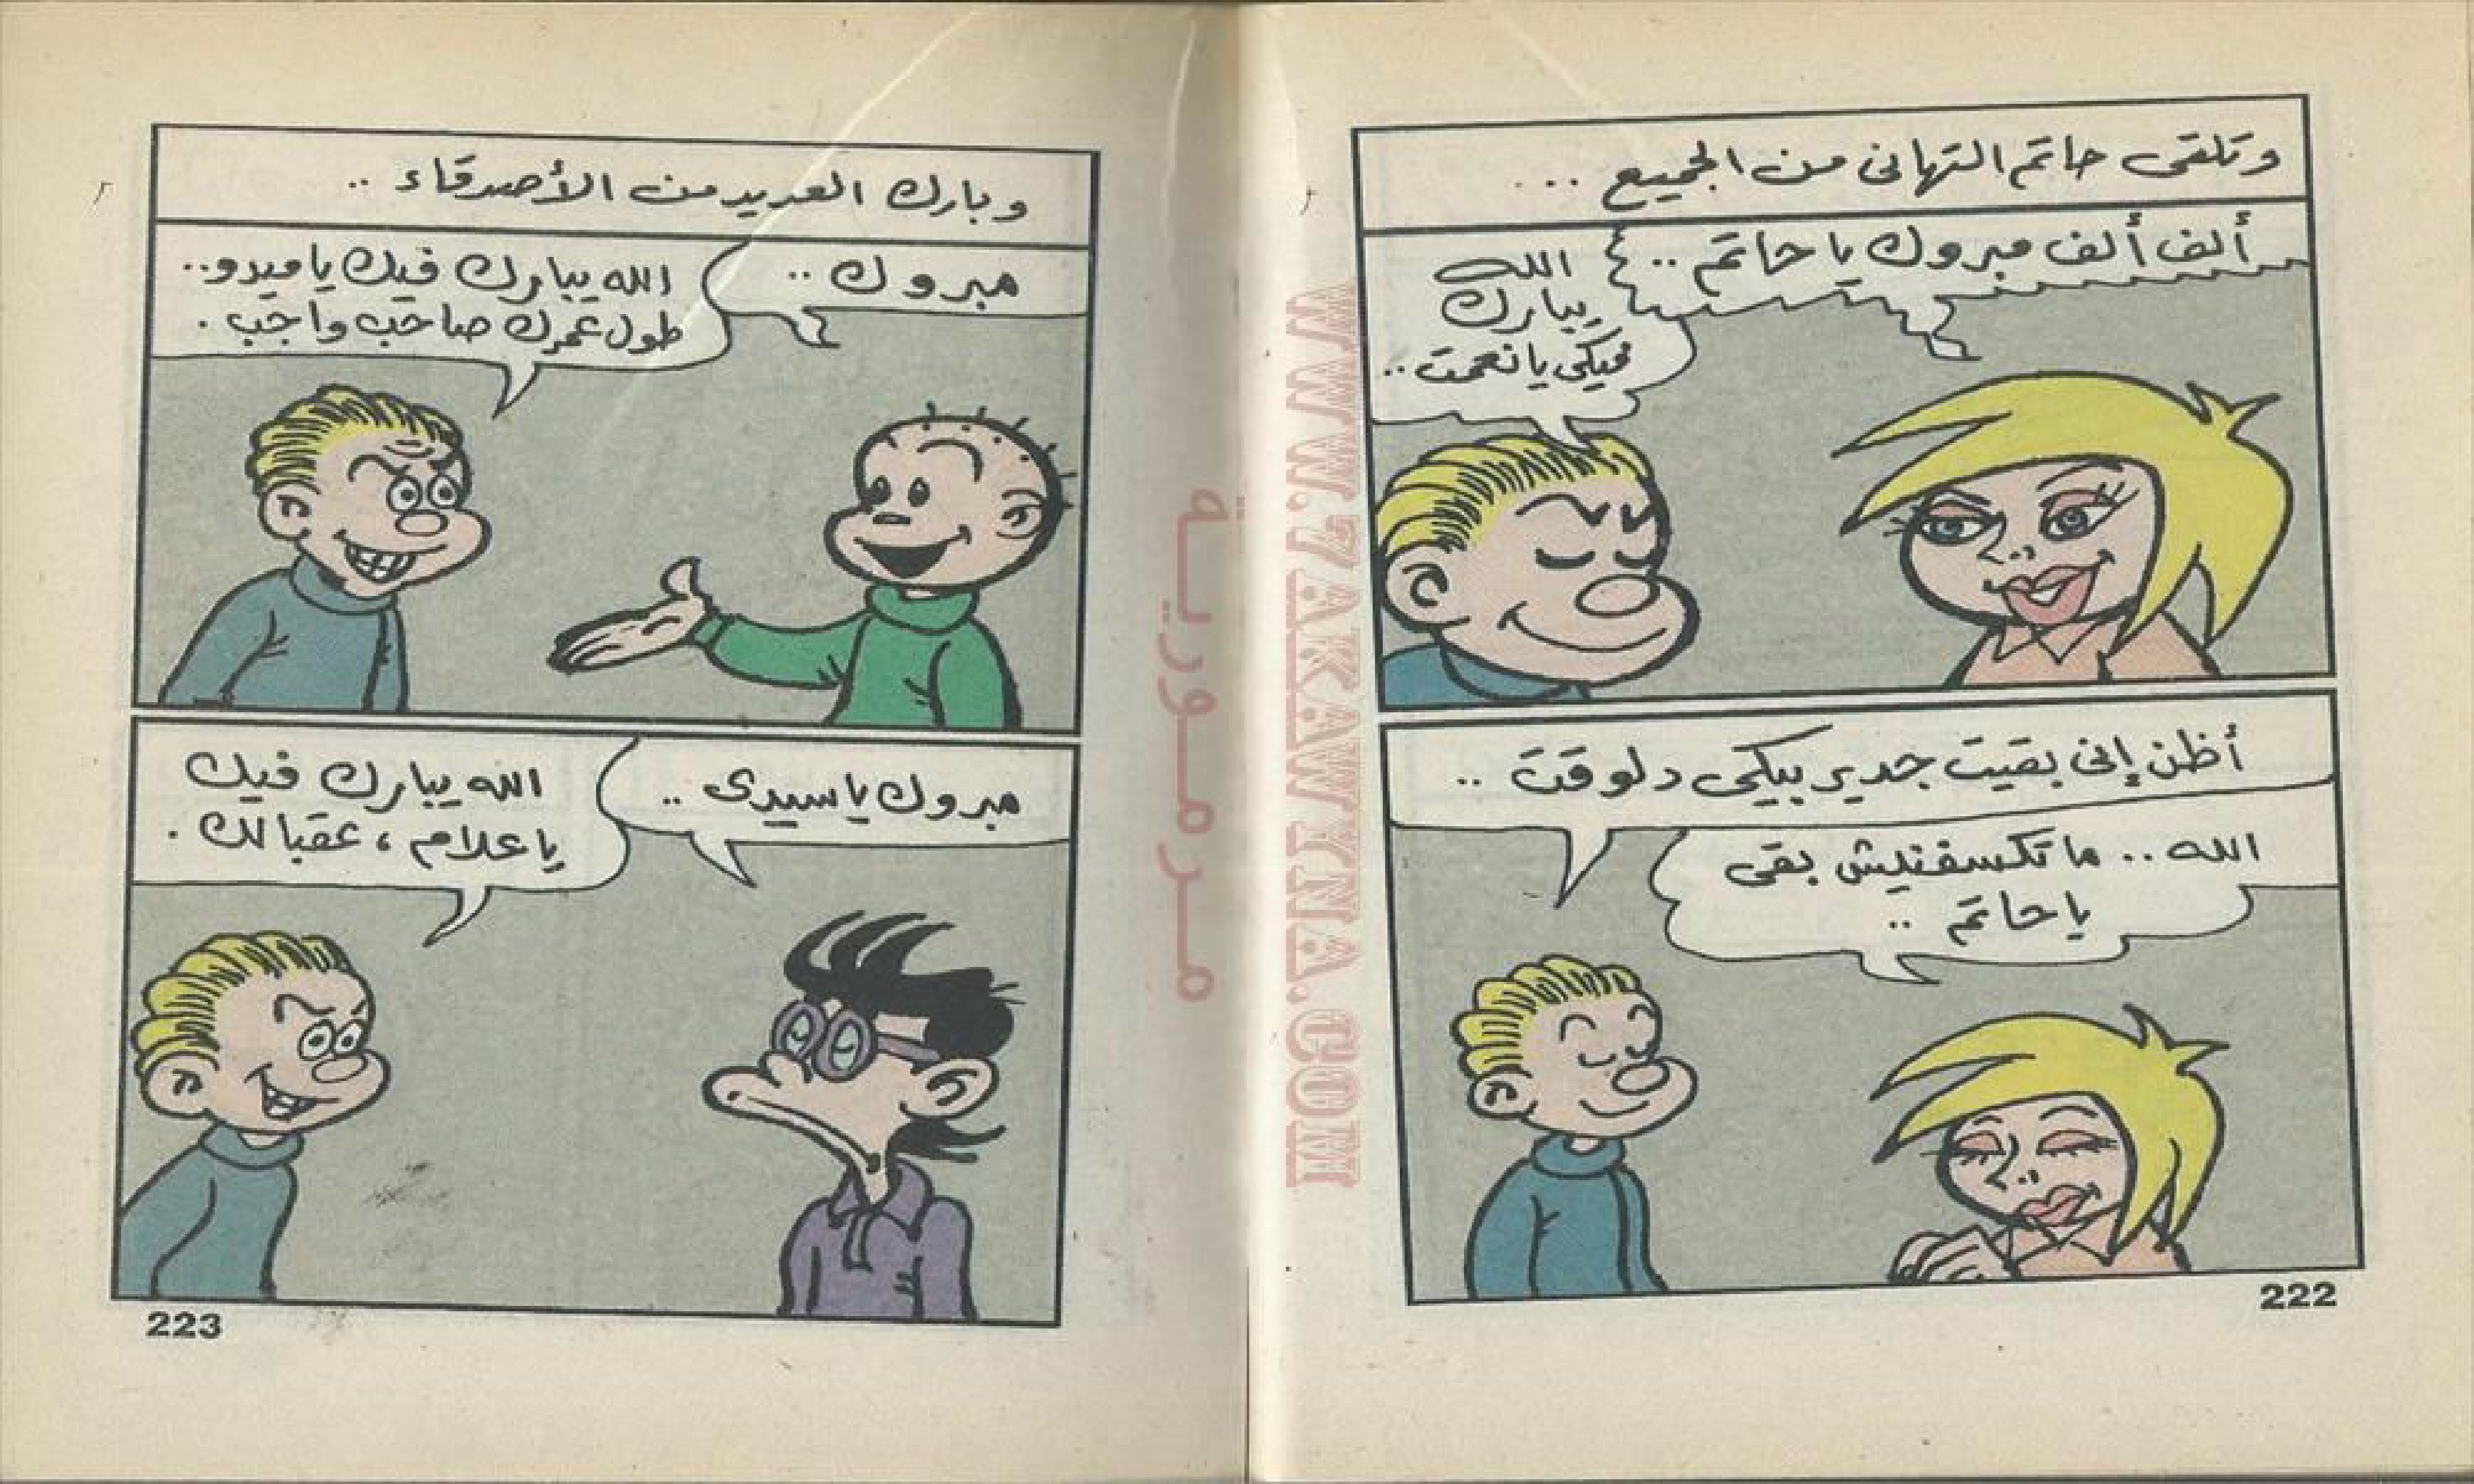 وتلقى حاتم التهانى من الجميع ...
ألف ألف مبروك يا حاتم ..
الله
يبارك
فيكى يا نعمت ..
أظن إنى بقيت جدير بيكى دلوقت ..
الله .. ما تكسفنيش بقى
يا حاتم ..
222
وبارك العديد من الأصدقاء ..
مبروك ..
الله يبارك فيك يا ميدو ..
طول عمرك صاحب واجب .
مبروك يا سيدى ..
الله يبارك فيك
يا علام ، عقبالك .
223
مرمورية
WWW.7AKAWINA.COM